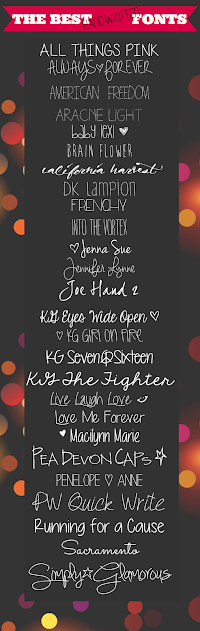 THE BEST HANDWRITTEN FONTS
ALL THINGS PINK
ALWAYS FOREVER
AMERICAN FREEDOM
ARACNE LIGHT
baby lexi
BRAIN FLOWER
california harvest
DK Lampion
FRENCHY
INTO THE VORTEX
Jenna Sue
Jennifer Lynne
Joe Hand 2
KG Eyes Wide Open
KG GIRL ON FIRE
KG Seven@Sixteen
KG The Fighter
Live Laugh Love
Love Me Forever
Macilynn Marie
PEA DEVON CAPS
PENELOPE ANNE
PW Quick Write
Running for a Cause
Sacramento
Simply Glamorous